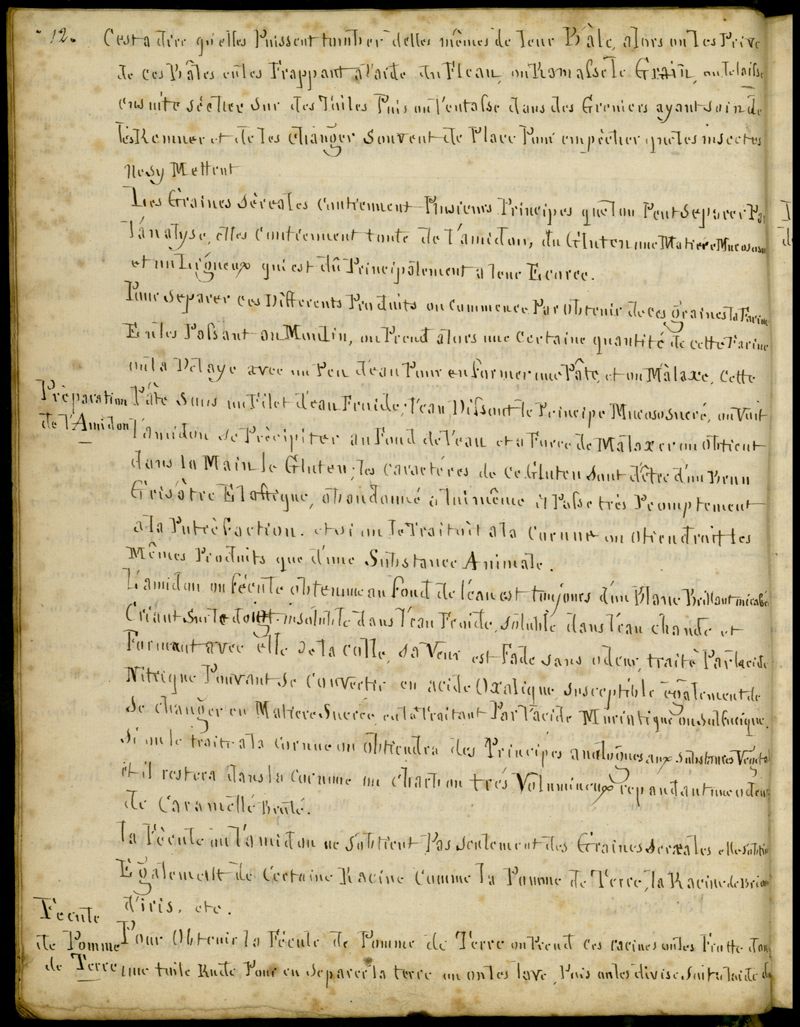 12.
C'est a dire qu'elles Puissent tomber delles mêmes de leur Bâle, alors on les Prive
de ces Bâles en les Frappant a l'aide du Fleau, on Ramasse le Grain, on le laisse
ensuite sécher sur des Toiles Puis on l'entasse dans des Greniers ayant soin de
les Remuer et de les changer souvent de Place Pour empêcher que les insectes
ne s'y Mettent
Les Graines Séreales Contiennent Plusieurs Principes que l'on Peut Séparer Par
l'analyse, elles Contiennent toute de l'amidon, du Gluten une Matiere Mucoso sucré
et un Ligneux qui est dû Principâlement a leur Ecorce.
Pour Separer ces Differents Produits on Commence Par Obtenir de ces graines la Farine
En les Passant au Moulin, on Prend alors une Certaine quantité de cette Farine
on la Delaye avec un Peu d'eau Pour en former une Pâte, et on Màlaxe, Cette
Préparation
de l'Amidon
Pâte Sous un Filet d'eau Froide, l'eau Dissout le Principe Mucoso Sucré, on Voit
l'amidon se Précipiter au Fond de l'eau et a Force de Màlaxer on obtient
dans la Main le Gluten; les Caractéres de ce Gluten sont d'être d'un Brun
Grisâtre Elastique, abandonné à lui même il Passe très Promptement
a la Putréfaction. et si on le Traitoit a la Cornue on Obtiendrait les
Mêmes Produits que d'une Substance Animale.
L'amidon ou Fécule obtenue au fond de l'eau est toujours d'un Blanc Brillant
Criant Sur le doigt insoluble dans l'eau Froide, soluble dans l'eau chaude et
Formant avec elle de la Colle, Saveur est Fade sans odeur, traité Par l'acide
Nitrique Pouvant se Convertir en acide Oxalique Susceptible egalement de
Se changer en Matiere Sucrée en la Traitant Par l'acide Muriatique ou Sulfurique.
Si on le traite a la Cornue on Obtiendra des Principes analogues aux Substances Végétal
et il restera dans la Cornue un charbon trés Volumineux repandant une odeur
de Caramelle Brulé.
la Fécule ou l'amidon ne S'obtient Pas seulement des Graines Sereales elle s'obtien
Egalement de Certaine Racine Comme la Pomme de Terre, la Racine de Brione
d'iris, etc.
Fecule
de Pomme
de Terre
Pour Obtenir la Fécule de Pomme de Terre on Prend ces racines on les Frotte dans
une toile Rude Pour en Séparer la terre ou on les lave, Puis on les divise Soit a l'aide d